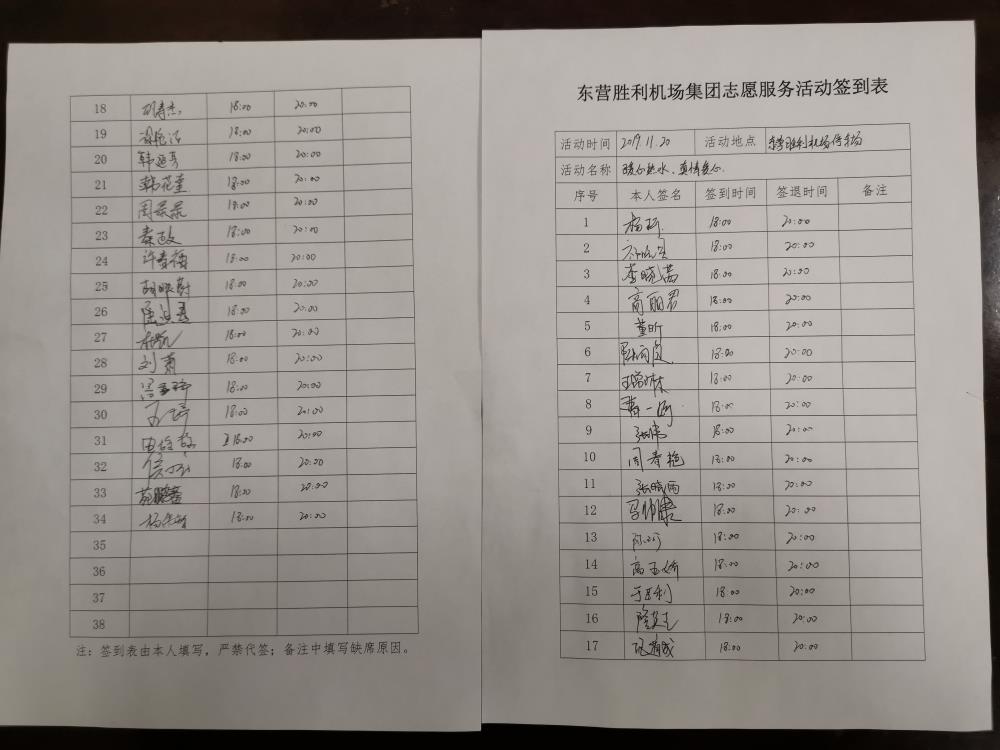 东营胜利机场集团志愿服务活动签到表
活动时间 2019.11.20 活动地点 东营胜利机场停车场
活动名称 暖心热水、真情暖心.
序号 本人签名 签到时间 签退时间 备注
1 杨珂 18:00 20:00
2 18:00 20:00
3 李晓茜 18:00 20:00
4 商丽君 18:00 20:00
5 董昕 18:00 20:00
6 18:00 20:00
7 18:00 20:00
8 18:00 20:00
9 张伟 18:00 20:00
10 周春艳 18:00 20:00
11 张晓雨 18:00 20:00
12 马帅康 18:00 20:00
13 18:00 20:00
14 高玉娇 18:00 20:00
15 18:00 20:00
16 18:00 20:00
17 18:00 20:00
18 18:00 20:00
19 18:00 20:00
20 18:00 20:00
21 韩花奎 18:00 20:00
22 18:00 20:00
23 秦政 18:00 20:00
24 许春梅 18:00 20:00
25 18:00 20:00
26 18:00 20:00
27 18:00 20:00
28 刘青 18:00 20:00
29 18:00 20:00
30 王婷 18:00 20:00
31 18:00 20:00
32 18:00 20:00
33 18:00 20:00
34 18:00 20:00
35
36
37
38
注：签到表由本人填写，严禁代签；备注中填写缺席原因。